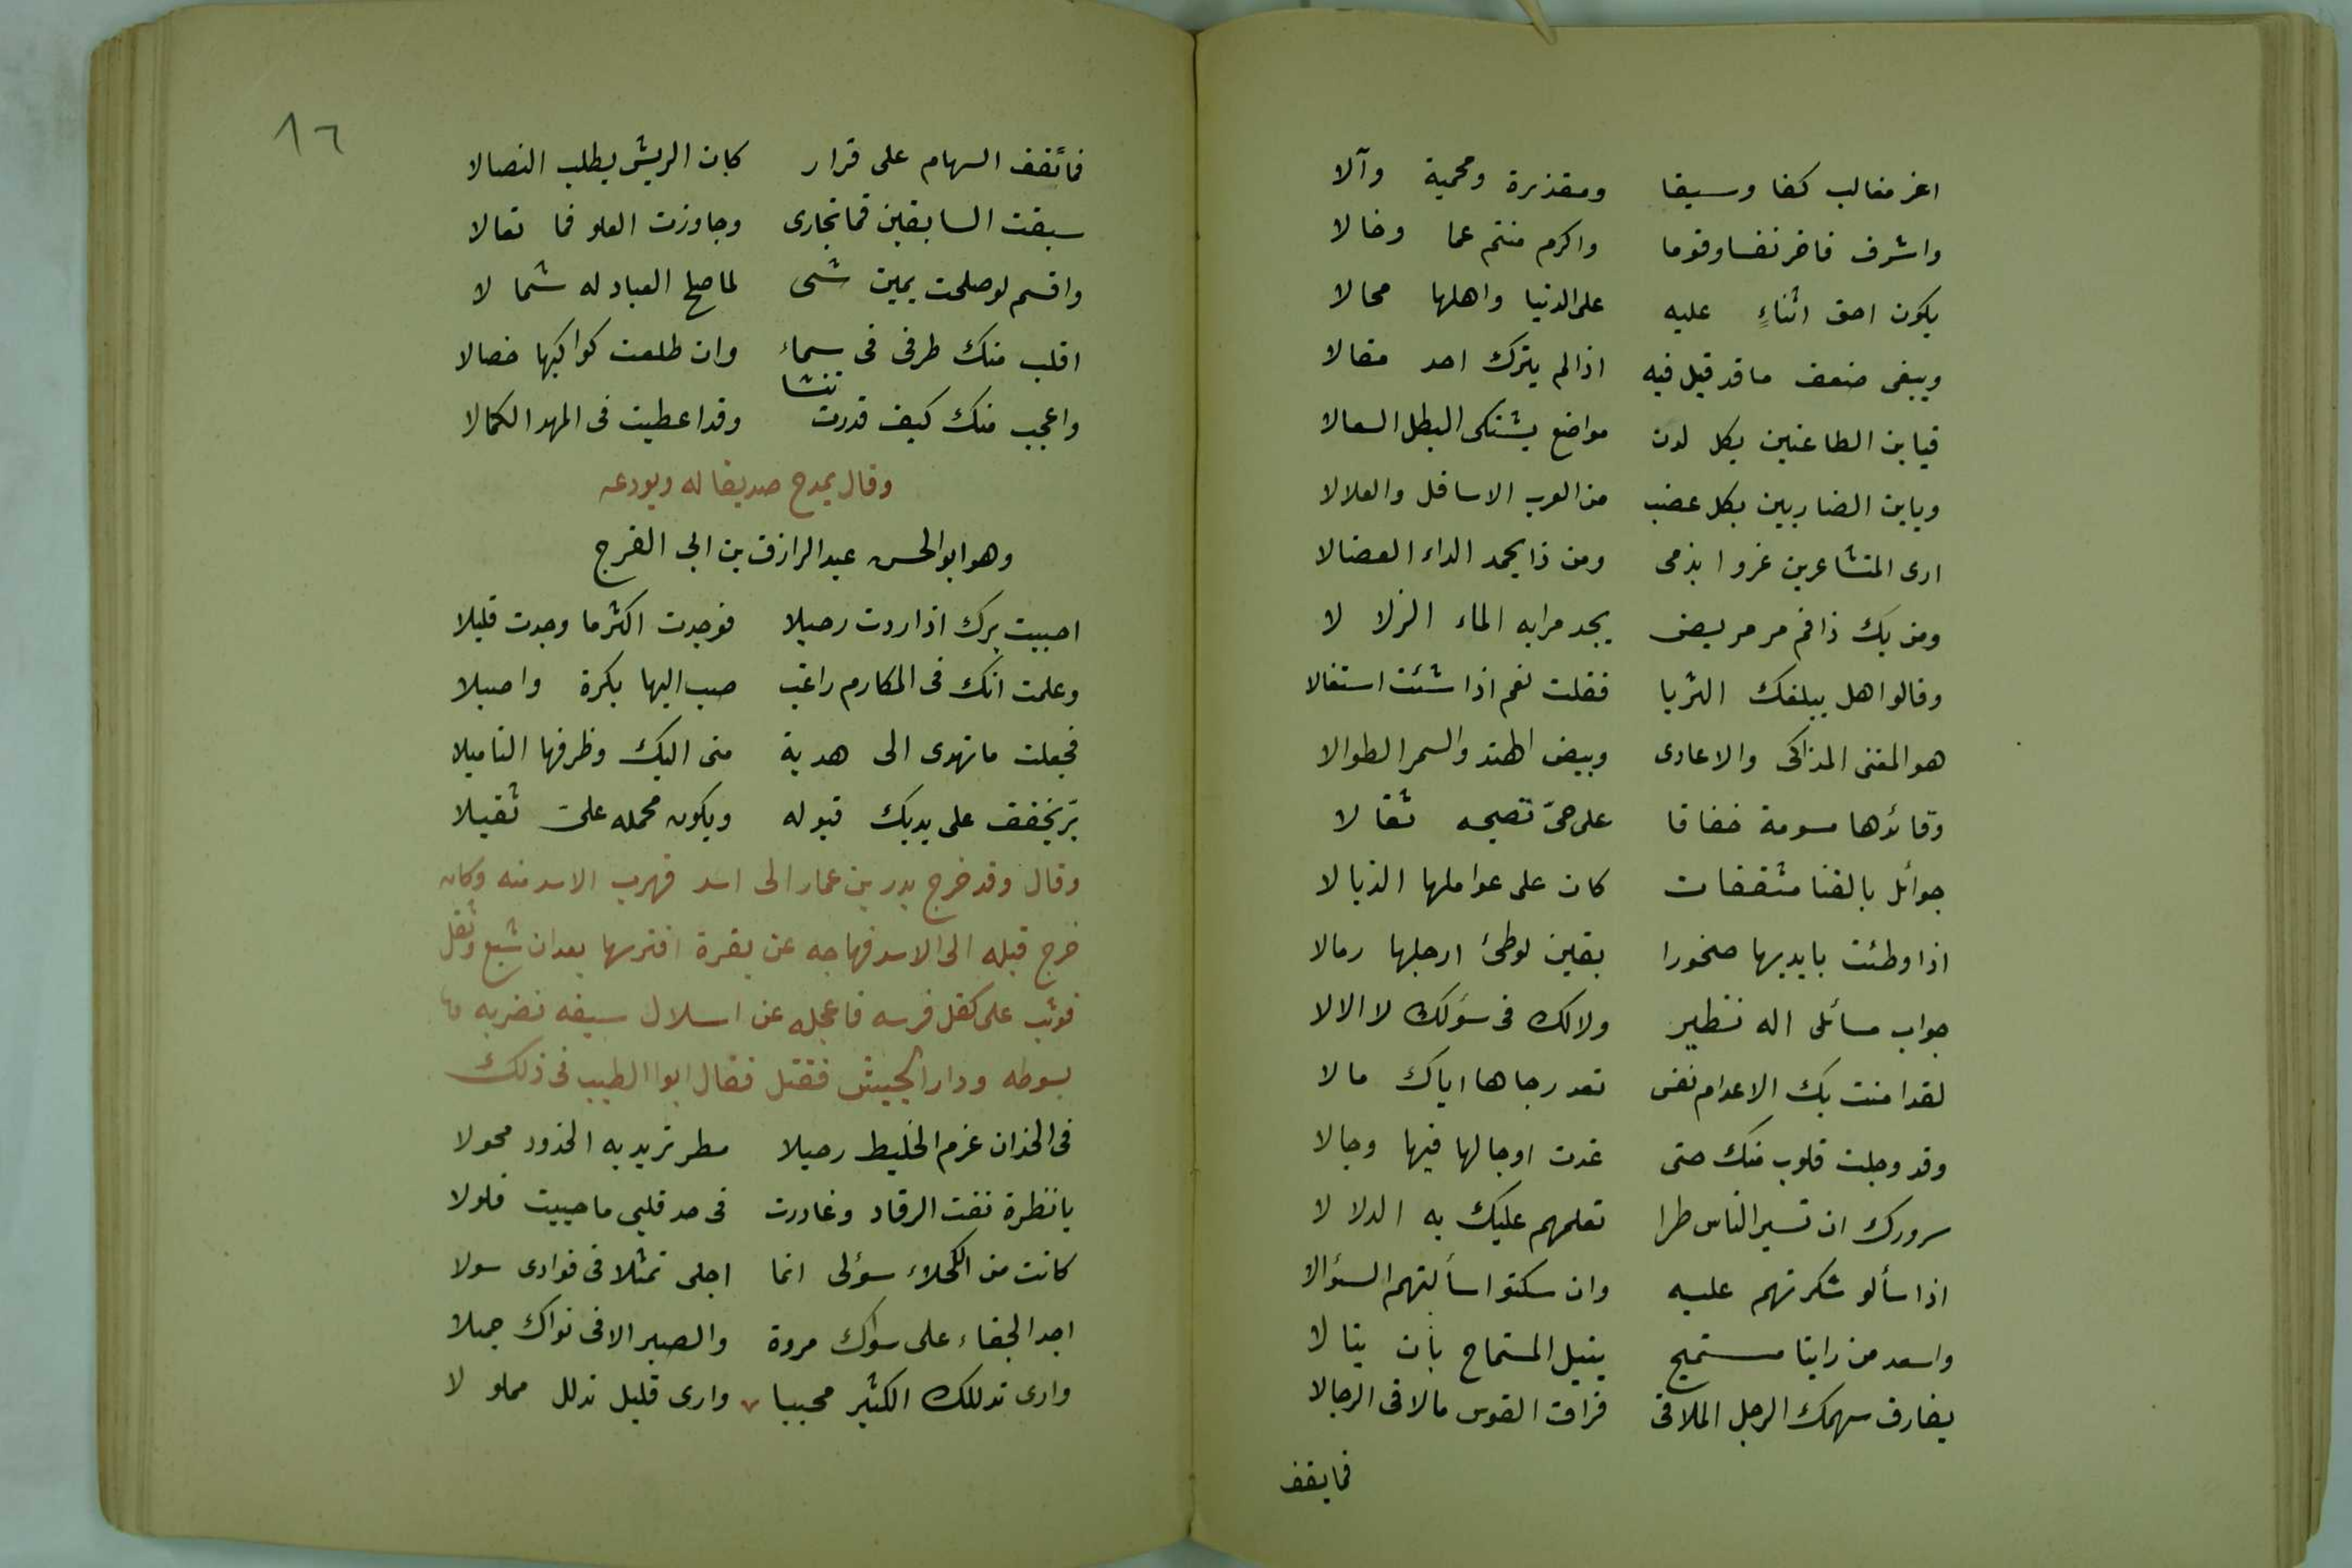 اعز مغالب كفا وسيفا ومقذرة ومحمية وآلا
واشرف فاخر نفسا وقوما واكرم منتم عما وخالا
يكون احق اثناءٍ عليه على الدنيا واهلها محالا
ويبقى ضعف ما قد قيل فيه اذا لم يترك احد مقالا
فيابن الطاعنين بكل لدن مواضع يشتكى البطل السعالا
ويابن الضاربين بكل عضب من العرب الاسافل والعلالا
ارى المتشاعرين غروا بذمى ومن ذا يحمد الداء العضالا
ومن يك ذا فم مر مريض يجد مرابه الماء الزلا لا
وقالوا هل يبلغك الثريا فقلت نعم اذا شئت استفالا
هو المفنى المذاكى والاعادى وبيض الهند والسمر الطوالا
وقائدها مسومة خفافا على حىّ تصبحه ثقا لا
جوائل بالقنا مثقفات كان على عواملها الذبا لا
اذا وطئت بايديها صخورا بقين لوطئ ارجلها رمالا
جواب مسائلى اله نظير ولا لك فى سؤلك لا الا لا
لقد امنت بك الاعدام نفس تعد رجاها اياك ما لا
وقد وجلت قلوب منك حتى غدت اوجالها فيها وجالا
سرورك ان تسير الناس طرا تعلمهم عليك به الدلا لا
اذا سألو شكرتهم عليه وان سكتوا سألتهم السؤالا
واسعد من راينا مستميح ينيل المستماح بأن ينا لا
يفارق سهمك الرجل الملاقى فراق القوس ما لاقى الرجالا
فما يقف
١٦
فما تقف السهام على قرار كان الريش يطلب النصالا
سبقت السابقين فما تجارى وجاوزت العلو فما تعالا
واقسم لو صلحت يمين شىء لما صلح العباد له شما لا
اقلب منك طرفى فى سماء وان طلعت كواكبها خصالا
واعجب منك كيف قدرت تنشا وقد اعطيت فى المهد الكمالا
وقال يمدح صديقا له ويودعه
وهو ابو الحسن عبد الرازق بن ابى الفرج
احببت برك اذا اردت رحيلا فوجدت اكثر ما وجدت قليلا
وعلمت انك فى المكارم راغب صب اليها بكرة واصيلا
فجعلت ما تهدى الى هدية منى اليك وظرفها التاميلا
برّ يخفف على يديك قبوله ويكون محمله على ثقيلا
وقال وقد خرج بدر بن عمار الى اسد فهرب الاسد منه وكان
خرج قبله الى الاسد فهاجه عن بقرة افترسها بعد ان شبع وثقل
فوثب على كفل فرسه فاعجله عن اسلال سيفه فضربه
بسوطه ودار الجيش فقتل فقال ابوا الطيب فى ذلك
فى الخدان غرم الخليط رحيلا مطر تزيد به الخدود محولا
يا نظرة نفت الرقاد وغادرت فى حد قلبى ما حييت فلولا
كانت من الكحلاء سؤلى انما اجلى تمثلا فى فوادى سولا
اجد الجفاء على سواك مروة والصبر الا فى نواك جميلا
وارى تدللك الكثير محببا وارى قليل تدلل مملو لا